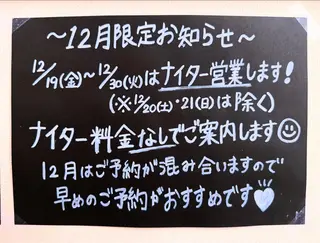 ～12月限定お知らせ～
12/19(金)～12/30(火)はナイター営業します!
(※12/20(土)・21(日)は除く)
ナイター料金なしでご案内します☺
12月はご予約が混み合いますので
早めのご予約がおすすめです♡